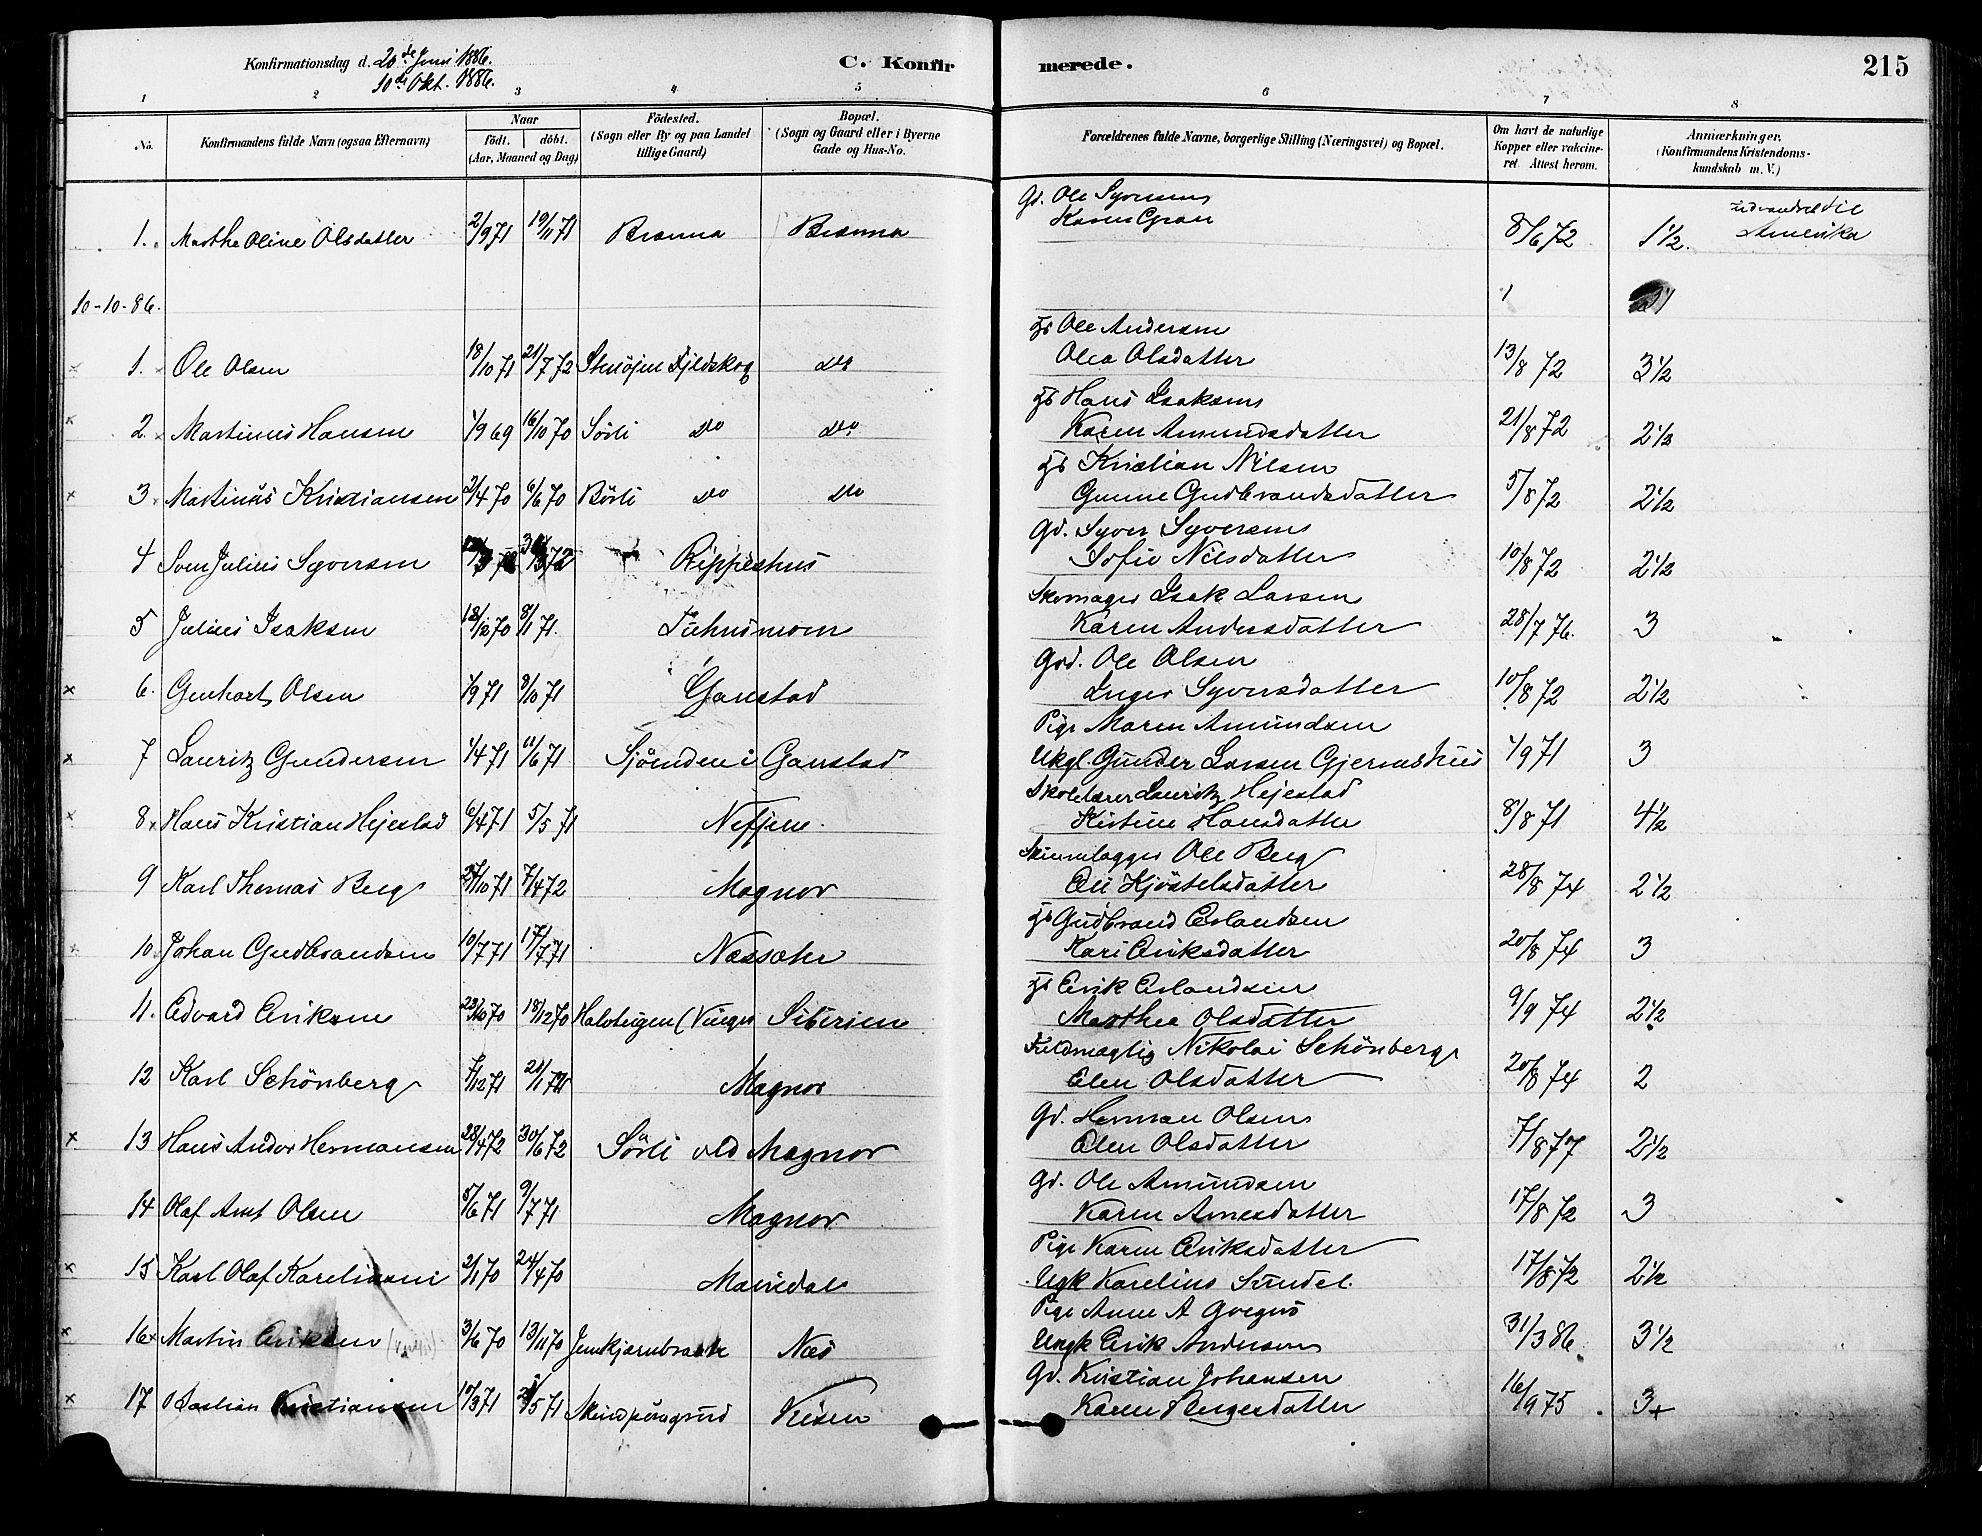 Konfirmationsdag d. 20de Juni 1886.
10de Okt. 1886.
C. Konfirmerede.
215
1 2 3 4 5 6 7 8
No.
Konfirmandens fulde Navn (ogsaa Efternavn)
Naar
født. døbt.
(Aar, Maaned og Dag)
Fødested.
(Sogn eller By og paa Landet
tillige Gaard)
Bopæl.
(Sogn og Gaard eller i Byerne
Gade og Hus-No.
Forældrenes fulde Navne, borgerlige Stilling (Næringsvei) og Bopæl.
Om havt de naturlige
Kopper eller vakcine-
ret. Attest herom.
Anmærkninger.
(Konfirmandens Kristendoms-
kundskab m. V.)
Gd. Ole Syversen
Karen Gran
1. Marthe Oline Olsdatter 2/9 71 19/11 71 Brænna Brænna 8/6 72 1½. udvandret til
Amerika
10-10-86.
Hs Ole Andersen
1. Ole Olsen 18/10 71 21/7 72 do Olea Olsdatter 13/8 72 3½
Hs Hans Isaksen
2. Martinus Hansen 1/9 69 16/10 70 Sørli do do Karen Amundsdatter 21/8 72 2½
Hs Kristian Nilsen
3. Martinus Kristiansen 2/4 70 6/6 70 Børli do do Gunne Gudbrandsdatter 5/8 72 2½
Gd. Syver Syversen
4 Sven Julius Syversen Rippeshus Sofie Nilsdatter 10/8 72 2½
Skomager Isak Larsen
5 Julius Isaksen 12/12 70 8/1 71. Karen Andersdatter 28/7 76. 3
Gd. Ole Olsen
6. Genhart Olsen 1/9 71 8/10 71 Ganstad Inger Syversdatter 10/8 72 2½
Pige Maren Amundsen
7 Lauritz Gundersen 1/4 71 11/6 71 Sjøenden i Ganstad Ukgl. Gunder Larsen Gjerneshus 1/9 71 3
Skolelærer Lauritz Hejestad
8 Hans Kristian Hejestad 6/4 71 5/5 71 Kristine Hansdatter 8/8 71 4½
Ole Berg
9 Karl Thomas Berg 24/10 71 7/4 72 Magnor Eli Kjøstelsdatter 28/8 74 2½
Hs Gudbrand Erlandsen
10. Johan Gudbrandsen 10/7 71 17/7 71 Næssæter Kari Eriksdatter 20/8 74 3
Hs Erik Erlandsen
11. Edvard Eriksen 23/10 70 18/12 70 (Vinger Siberien Marthea Olsdatter 9/9 74 2½
Nikolai Schönberg
12 Karl Schönberg 7/12 71 Magnor Elen Olsdatter 20/8 74 2
Gd. Herman Olsen
13 Hans Andor Hermansen 28/4 72 30/6 72 Sørli ved Magnor Elen Olsdatter 7/8 77 2½
Gd. Ole Amundsen
14 Olaf Amt Olsen 5/6 71 9/7 71 Magnor Karen Arnesdatter 17/8 72 3
Pige Karen Eriksdatter
15 Karl Olaf Kareliussen 2/1 70 24/4 70 Ugk Karelius Sundet. 17/8 72 2½
Pige Anne A
16 Martin Eriksen 3/6 70 13/11 70 Næs Ungk Erik Andersen 31/3 86. 3½
Gd. Kristian Johansen
17 Kristiansen 17/3 71 Karen 16/9 75 3+